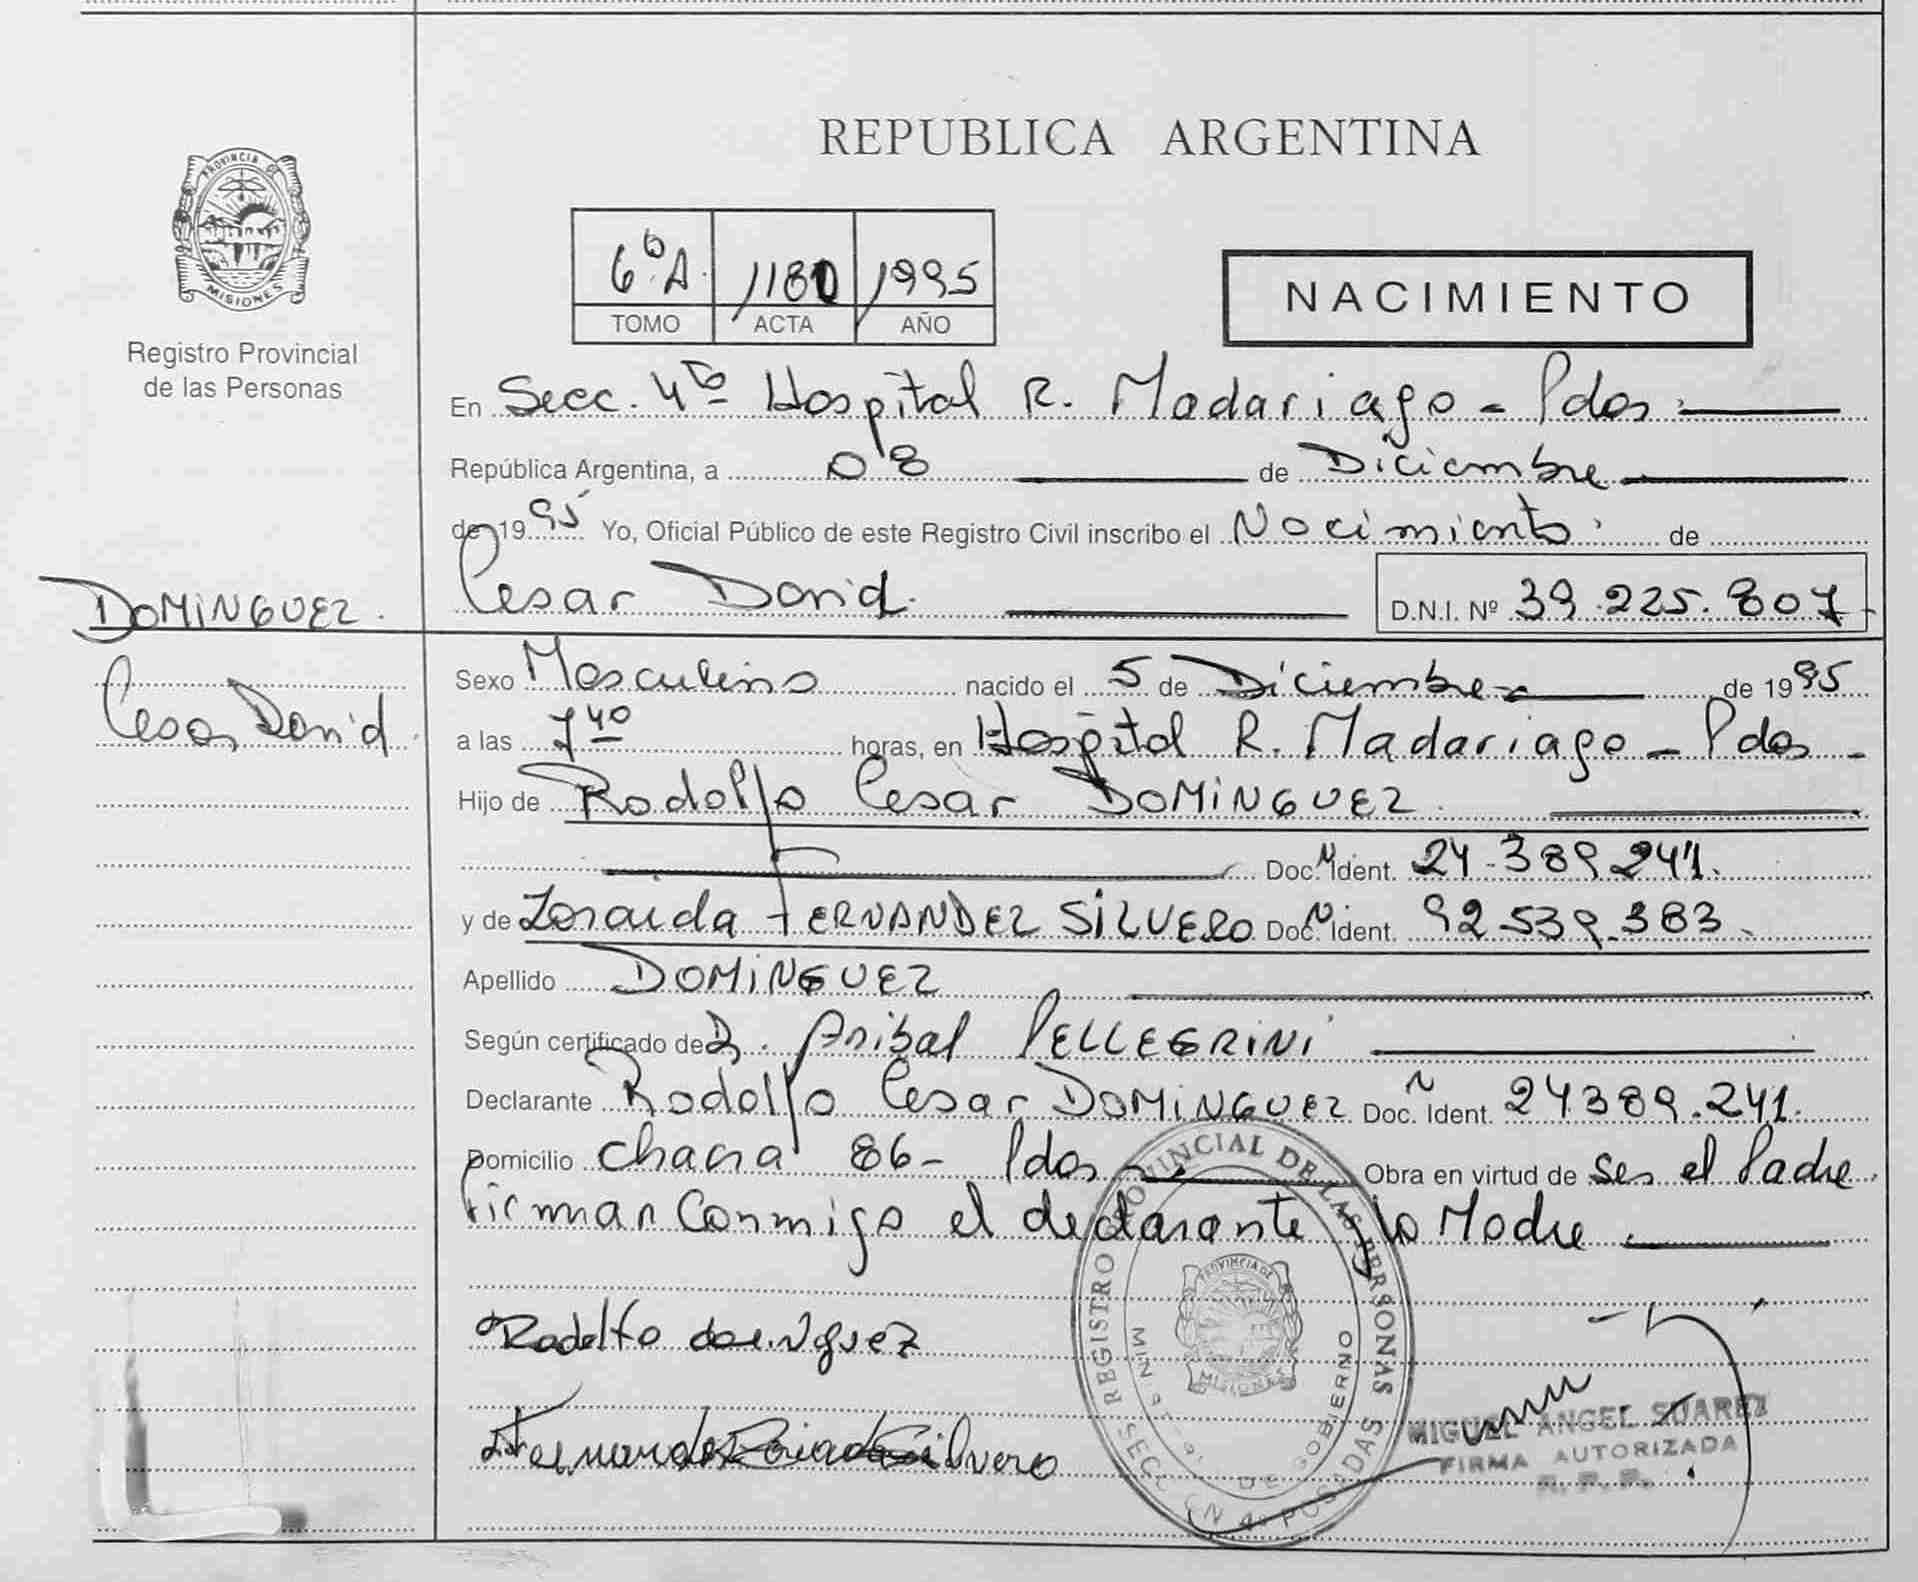 REPUBLICA ARGENTINA
PROVINCIA DE
MISIONES
Registro Provincial
de las Personas
6º A. 1180 1995
TOMO ACTA AÑO
NACIMIENTO
En Secc. 4ta Hospital R. Madariaga - Pdas.
República Argentina, a 08 de Diciembre
de 1995 Yo, Oficial Público de este Registro Civil inscribo el Nacimiento de
Cesar David D.N.I. Nº 39.225.807
DOMINGUEZ.
Cesar David
Sexo Masculino nacido el 5 de Diciembre de 1995
a las 7 40 horas, en Hospital R. Madariaga - Pdas -
Hijo de Rodolfo Cesar DOMINGUEZ.
Doc. N Ident. 24.389.241.
y de Zoraida FERNANDEZ SILVERO Doc. N Ident. 92.539.383.
Apellido DOMINGUEZ
Según certificado de D. Anibal PELLEGRINI
Declarante Rodolfo Cesar DOMINGUEZ Doc. N Ident. 24.389.241.
Domicilio Chacra 86 - Pdas - Obra en virtud de ser el Padre.
Firman Conmigo el declarante y la Madre
Rodolfo dominguez
Fernandez Zoraida Silvero
REGISTRO PROVINCIAL DE LAS PERSONAS
SECCIÓN 4a POSADAS
MINISTERIO DE GOBIERNO
PROVINCIA DE
MISIONES
MIGUEL ANGEL SUAREZ
FIRMA AUTORIZADA
R. P. P.